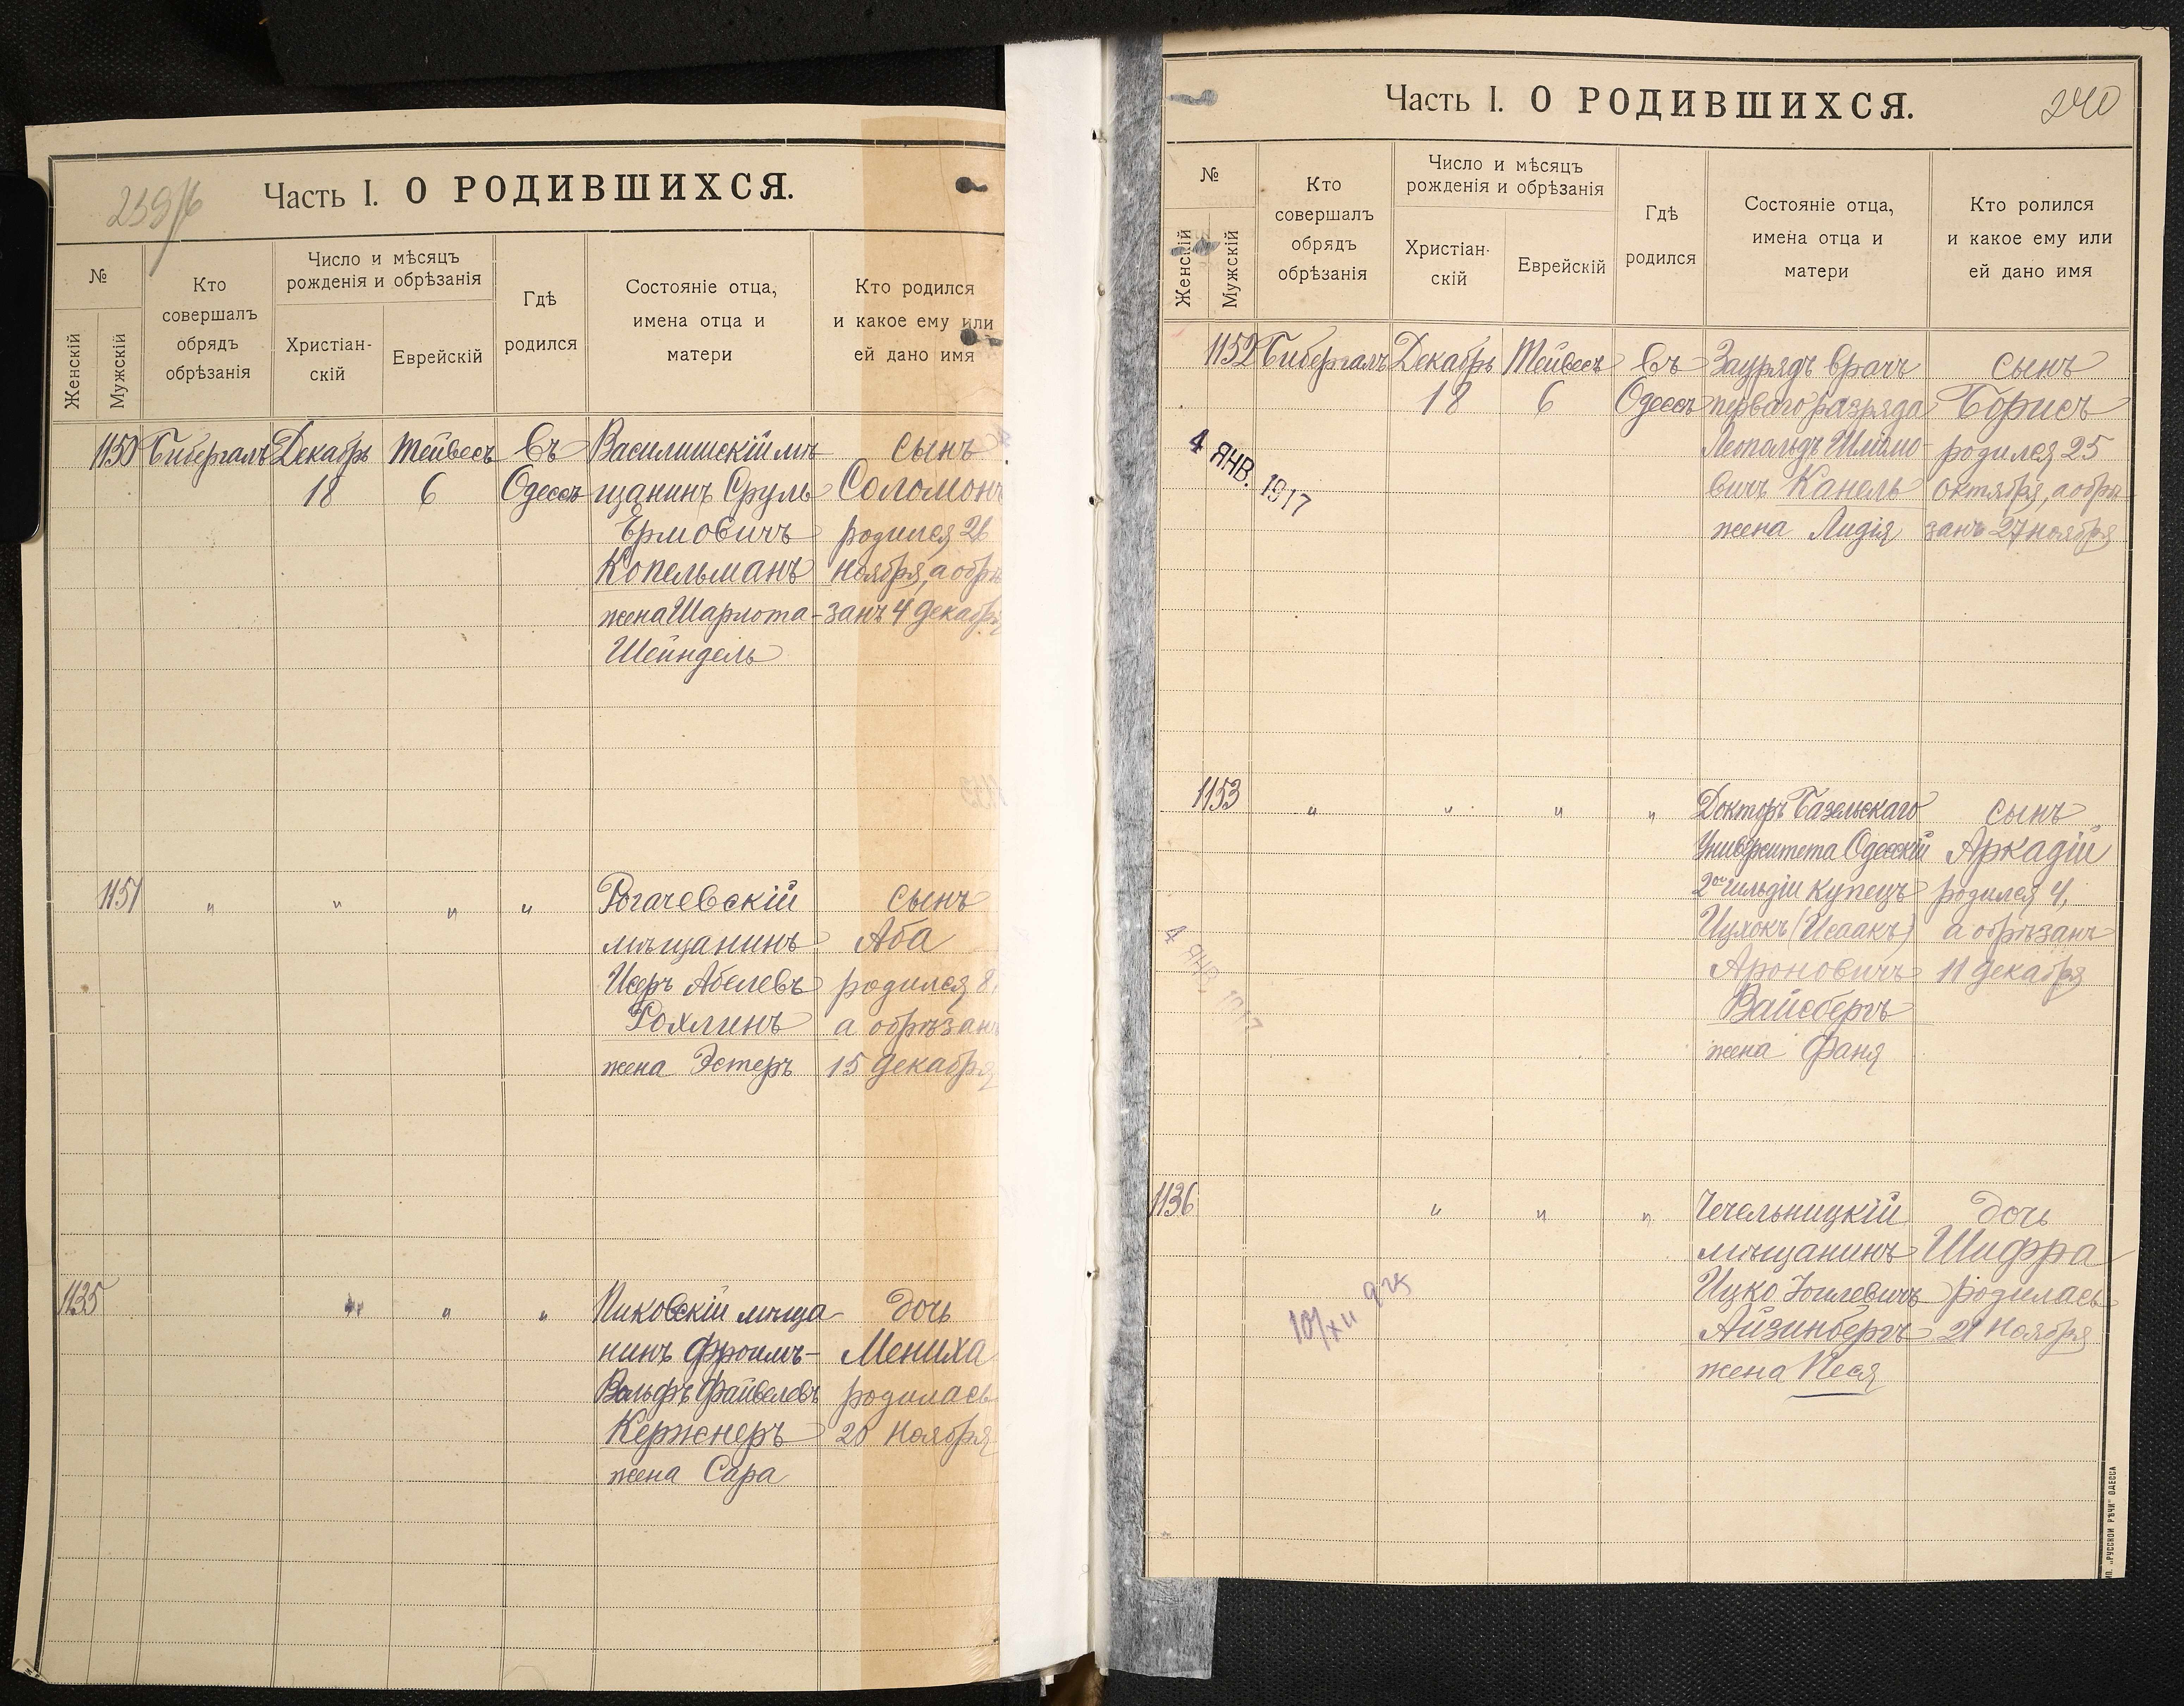 239/б
Часть I. О РОДИВШИХСЯ.
№
Женскій
Мужскій
Кто
совершалъ
обрядъ
обрѣзанія
Число и мѣсяцъ
рожденія и обрѣзанія
Христіан-
скій
Еврейскій
Гдѣ
родился
Состояніе отца,
имена отца и
матери
Кто родился
и какое ему или
ей дано имя
1150 Бибергалъ Декабрь Тейвесъ Въ Василишскій мѣ- сынъ
18 6 Одессѣ щанинъ Сруль Соломонъ
Ермовичъ родился 26
Копельманъ ноября, а обрѣ
жена Шарлота- занъ 4 декабря
Шейндель
1151 " " " " Рогачевскій сынъ
мѣщанинъ Аба
Исеръ Абелевъ родился 8,
Рохлинъ а обрѣзанъ
жена Эстеръ 15 декабря
1135 " " " Пиковскій мѣща- дочь
нинъ Фроимъ- Мениха
Вольфъ Файвелевъ родилась
Кержнеръ 20 ноября
жена Сара
Часть I. О РОДИВШИХСЯ.
240
№
Женскій
Мужскій
Кто
совершалъ
обрядъ
обрѣзанія
Число и мѣсяцъ
рожденія и обрѣзанія
Христіан-
скій
Еврейскій
Гдѣ
родился
Состояніе отца,
имена отца и
матери
Кто ролился
и какое ему или
ей дано имя
1152 Бибергалъ Декабрь Тейвесъ Въ Заурядъ врачъ сынъ
18 6 Одессѣ перваго разряда Борисъ
4 ЯНВ. 1917
Леопольдъ Шлёмо- родился 25
вичъ Канель октября, а обрѣ
жена Лидія занъ 27 ноября
1153 " " " " Докторъ Базельскаго сынъ
Университета Одесскій Аркадій
2ой гильдіи купецъ родился 4,
Ицхокъ (Исаакъ) а обрѣзанъ
4 ЯНВ. 1917
Ароновичъ 11 декабря
Вайсбергъ
жена Фаня
1136 " " " Чечельницкій дочь
мѣщанинъ Шифра
Ицко Іоилевичъ родилась
Айзинбергъ 21 ноября
жена Песя
10/XII 925
„РУССКОЙ РѢЧИ" ОДЕССА